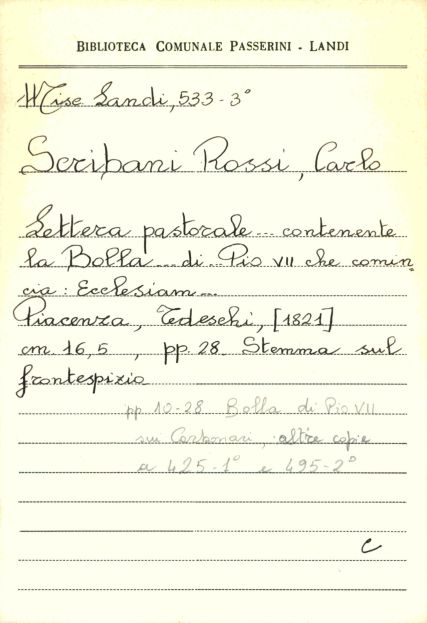 BIBLIOTECA COMUNALE PASSERINI - LANDI
Misc Landi, 533-3°
Scribani Rossi, Carlo
Lettera pastorale ... contenente
la Bolla ... di ... Pio VII che comin-
cia: Ecclesiam...
Piacenza, Tedeschi, [1821]
cm. 16,5 , pp. 28. Stemma sul
frontespizio
pp. 10-28 Bolla di Pio VII
sui Carbonari, altre copie
a 425-1° e 495-2°
C